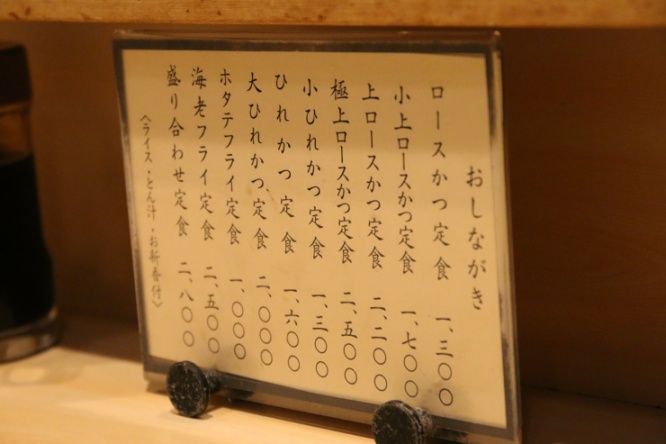 おしながき
ロースかつ定食 一、三〇〇
小上ロースかつ定食 一、七〇〇
上ロースかつ定食 二、二〇〇
極上ロースかつ定食 二、五〇〇
小ひれかつ定食 一、三〇〇
ひれかつ定食 一、六〇〇
大ひれかつ定食 二、〇〇〇
ホタテフライ定食 一、〇〇〇
海老フライ定食 二、五〇〇
盛り合わせ定食 二、八〇〇
〈ライス・とん汁・お新香付〉